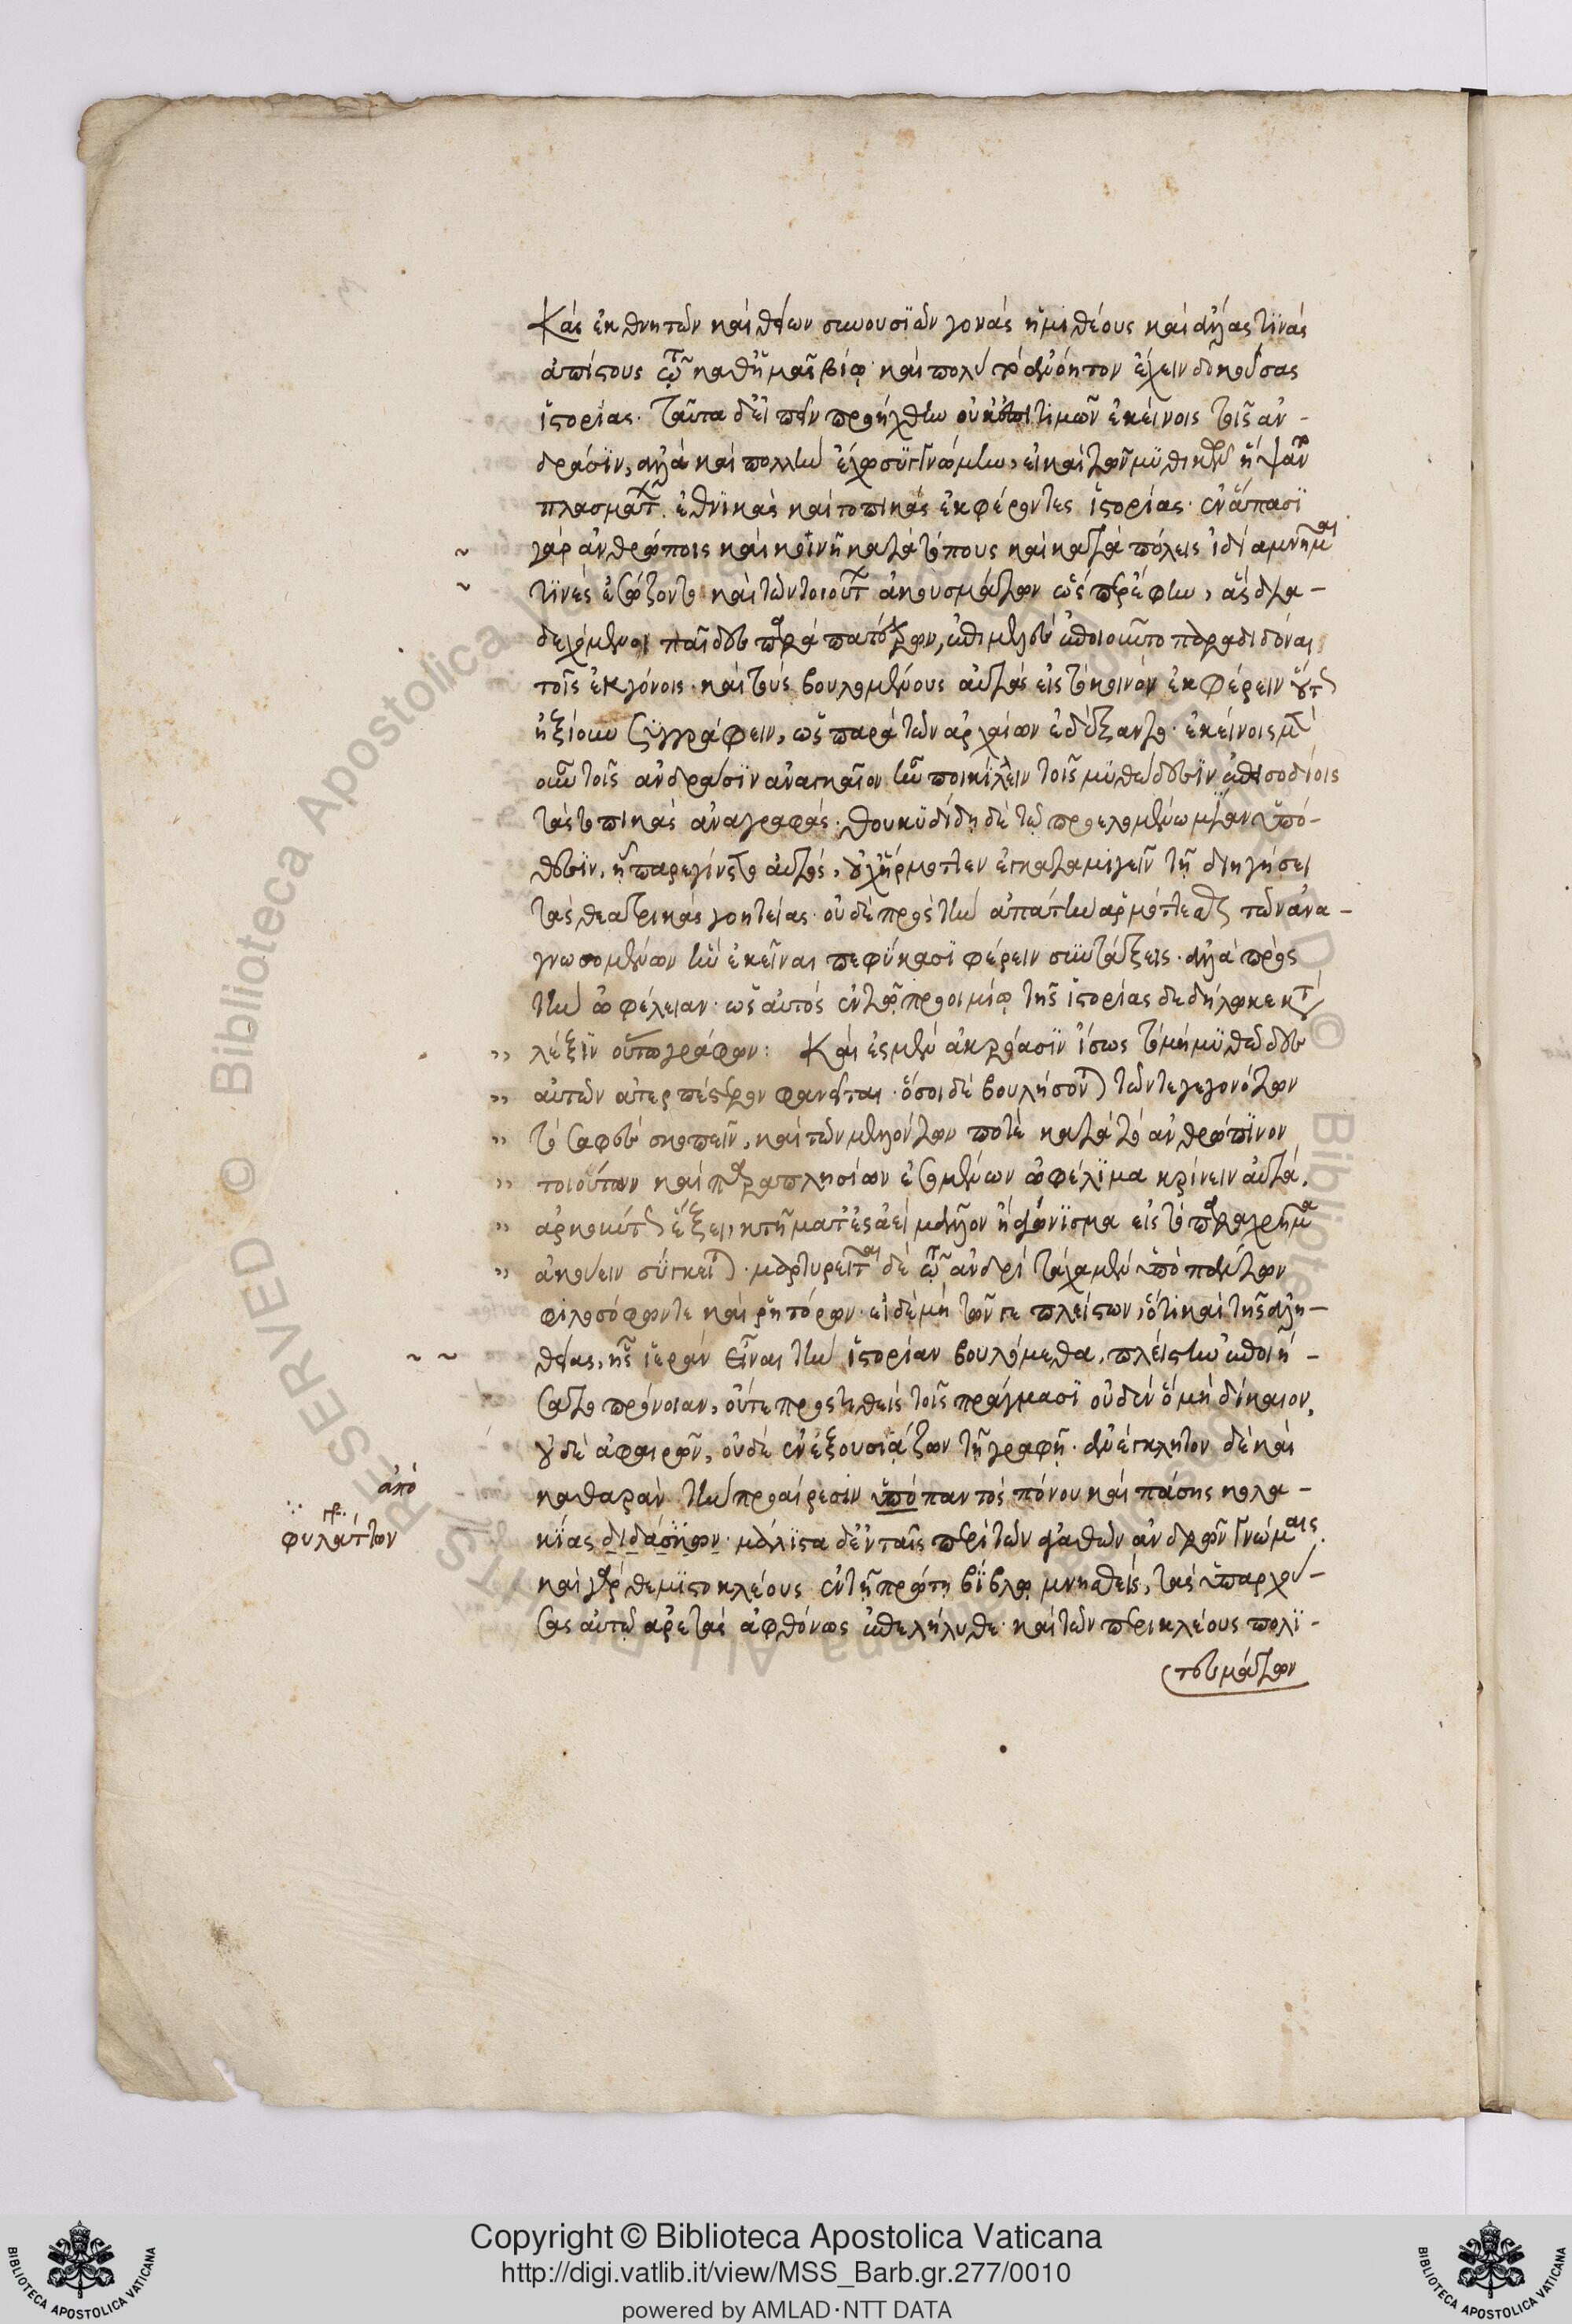 Κὰς ἐκ θνητῶν καὶ θείων συνουσιῶν γονὰς ἡμιθέους καὶ ἄλλας τινὰς
ἀπίστους τῷ καθ' ἡμᾶς βίῳ καὶ πολὺ τὸ ἀνόητον ἔχειν δοκούσας
ἱστορίας. ταῦτα δ' εἰπεῖν προήχθην οὐκ ἐπιτιμῶν ἐκείνοις τοῖς ἀν-
δράσιν, ἀλλὰ καὶ πολλὴν ἔχων συγγνώμην, εἰ καὶ τῶν μυθικῶν ἥψαντο
πλασμάτων ἐθνικὰς καὶ τοπικὰς ἐκφέροντες ἱστορίας. ἐν ἅπασι
γὰρ ἀνθρώποις καὶ κοινῇ κατὰ τόπους καὶ κατὰ πόλεις ἰδίᾳ μνῆμαι
τινὲς ἐσώζοντο καὶ τῶν τοιούτων ἀκουσμάτων ὥσπερ ἔφην, ἃς δια-
δεχόμενοι παῖδες παρὰ πατέρων, ἐπιμελὲς ἐποιοῦντο παραδιδόναι
τοῖς ἐκγόνοις. καὶ τοὺς βουλομένους αὐτὰς εἰς τὸ κοινὸν ἐκφέρειν οὕτως
ἠξίουν συγγράφειν, ὡς παρὰ τῶν ἀρχαίων ἐδέξαντο. ἐκείνοις μὲν
οὖν τοῖς ἀνδράσιν ἀναγκαῖον ἦν ποικίλλειν τοῖς μυθώδεσιν ἐπεισοδίοις
τὰς τοπικὰς ἀναγραφάς. Θουκυδίδῃ δὲ τῷ προελομένῳ μίαν ὑπό-
θεσιν, ᾗ παρεγίνετο αὐτός, οὐχ ἥρμοττεν ἐγκαταμιγεῖν τῇ διηγήσει
τὰς θεατρικὰς γοητείας. οὐδὲ πρὸς τὴν ἀπάτην ἁρμόττεσθαι τῶν ἀνα-
γνωσομένων ἣν ἐκεῖναι πεφύκασι φέρειν συντάξεις. ἀλλὰ πρὸς
τὴν ὠφέλειαν. ὡς αὐτὸς ἐν τῷ προοιμίῳ τῆς ἱστορίας δεδήλωκε κατὰ
λέξιν οὕτω γράφων: Καὶ ἐς μὲν ἀκρόασιν ἴσως τὸ μὴ μυθῶδες
αὐτῶν ἀτερπέστερον φανεῖται. ὅσοι δὲ βουλήσονται τῶν τε γεγονότων
τὸ σαφὲς σκοπεῖν, καὶ τῶν μελλόντων ποτὲ κατὰ τὸ ἀνθρώπινον
τοιούτων καὶ παραπλησίων ἐσομένων ὠφέλιμα κρίνειν αὐτά.
ἀρκούντως ἕξει, κτῆμά τ' ἐς ἀεὶ μᾶλλον ἢ ἀγώνισμα εἰς τὸ παραχρῆμα
ἀκούειν σύγκειται. μαρτυρεῖται δὲ τῷ ἀνδρὶ τάχα μὲν ὑπὸ πάντων
φιλοσόφων τε καὶ ῥητόρων. εἰ δὲ μὴ τῶν γε πλείστων, ὅτι καὶ τῆς ἀλη-
θείας, ἧς ἱερὰν εἶναι τὴν ἱστορίαν βουλόμεθα, πλείστην ἐποιή-
σατο πρόνοιαν, οὔτε προστιθεὶς τοῖς πράγμασι οὐδὲν ὃ μὴ δίκαιον,
οὐδὲ ἀφαιρῶν, οὐδὲ ἐνεξουσιάζων τῇ γραφῇ. ἀνέγκλητον δὲ καὶ
καθαρὰν τὴν προαίρεσιν ὑπὸ παντὸς πόνου καὶ πάσης κολα-
κείας μάλιστα δ' ἐν ταῖς περὶ τῶν ἀγαθῶν ἀνδρῶν γνώμαις.
καὶ γὰρ Θεμιστοκλέους ἐν τῇ πρώτῃ βίβλῳ μνησθείς, τὰς ὑπαρχού-
σας αὐτῷ ἀρετὰς ἀφθόνως ἐπελήλυθε. καὶ τῶν Περικλέους πολι-
τευμάτων
ἀπὸ
γρ.
φυλάττων
Copyright © Biblioteca Apostolica Vaticana
http://digi.vatlib.it/view/MSS_Barb.gr.277/0010
powered by AMLAD·NTT DATA
BIBLIOTECA APOSTOLICA VATICANA
BIBLIOTECA APOSTOLICA VATICANA